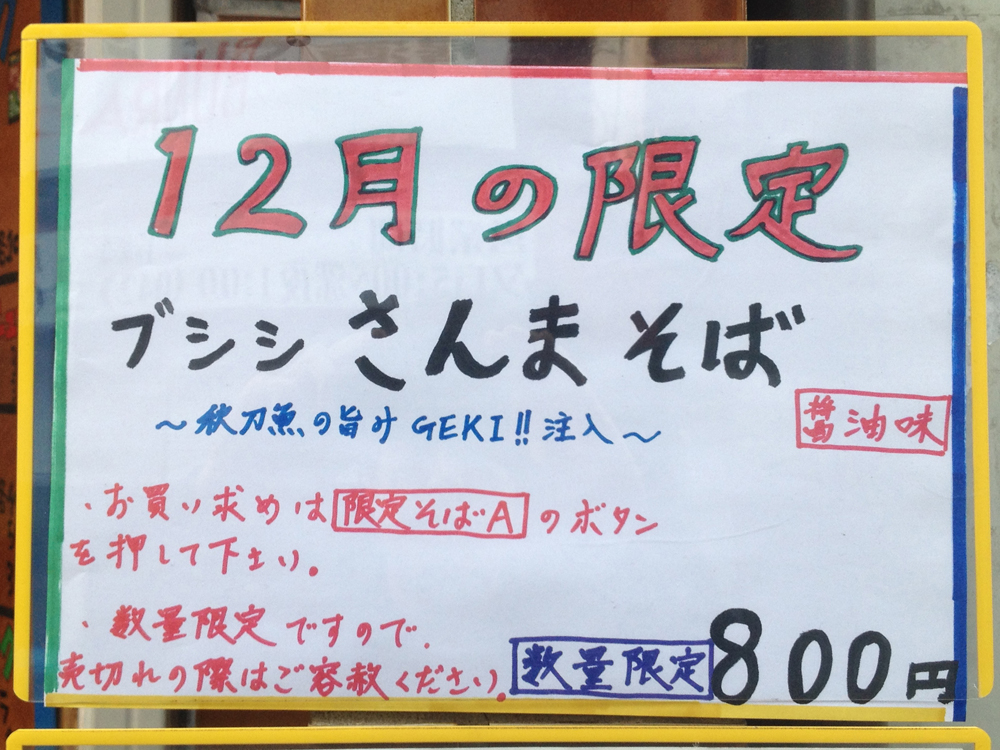 12月の限定
ブシシ さんま そば
～秋刀魚の旨み GEKI!! 注入～
醤油味
・お買い求めは 限定そばA のボタン
を押して下さい。
・数量限定ですので、
売切れの際はご容赦ください。
数量限定 800円